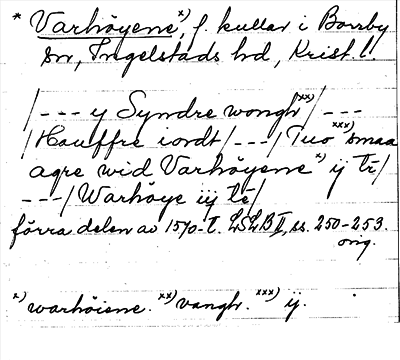 * Varhöyene x), f. kullar i Borrby
sn, Ingelstads hd, Krist. l.
/--- y Syndre wongh xx)/ ---
/Houffre iordt/---/Tuo xxx) smaa
agre wid Varhöyene x) ij tr/
---/Warhöye iij te/
förra delen av 1570-t. LSLB II, ss. 250-253.
orig.
x) warhöiene. xx) vangh. xxx) ij.